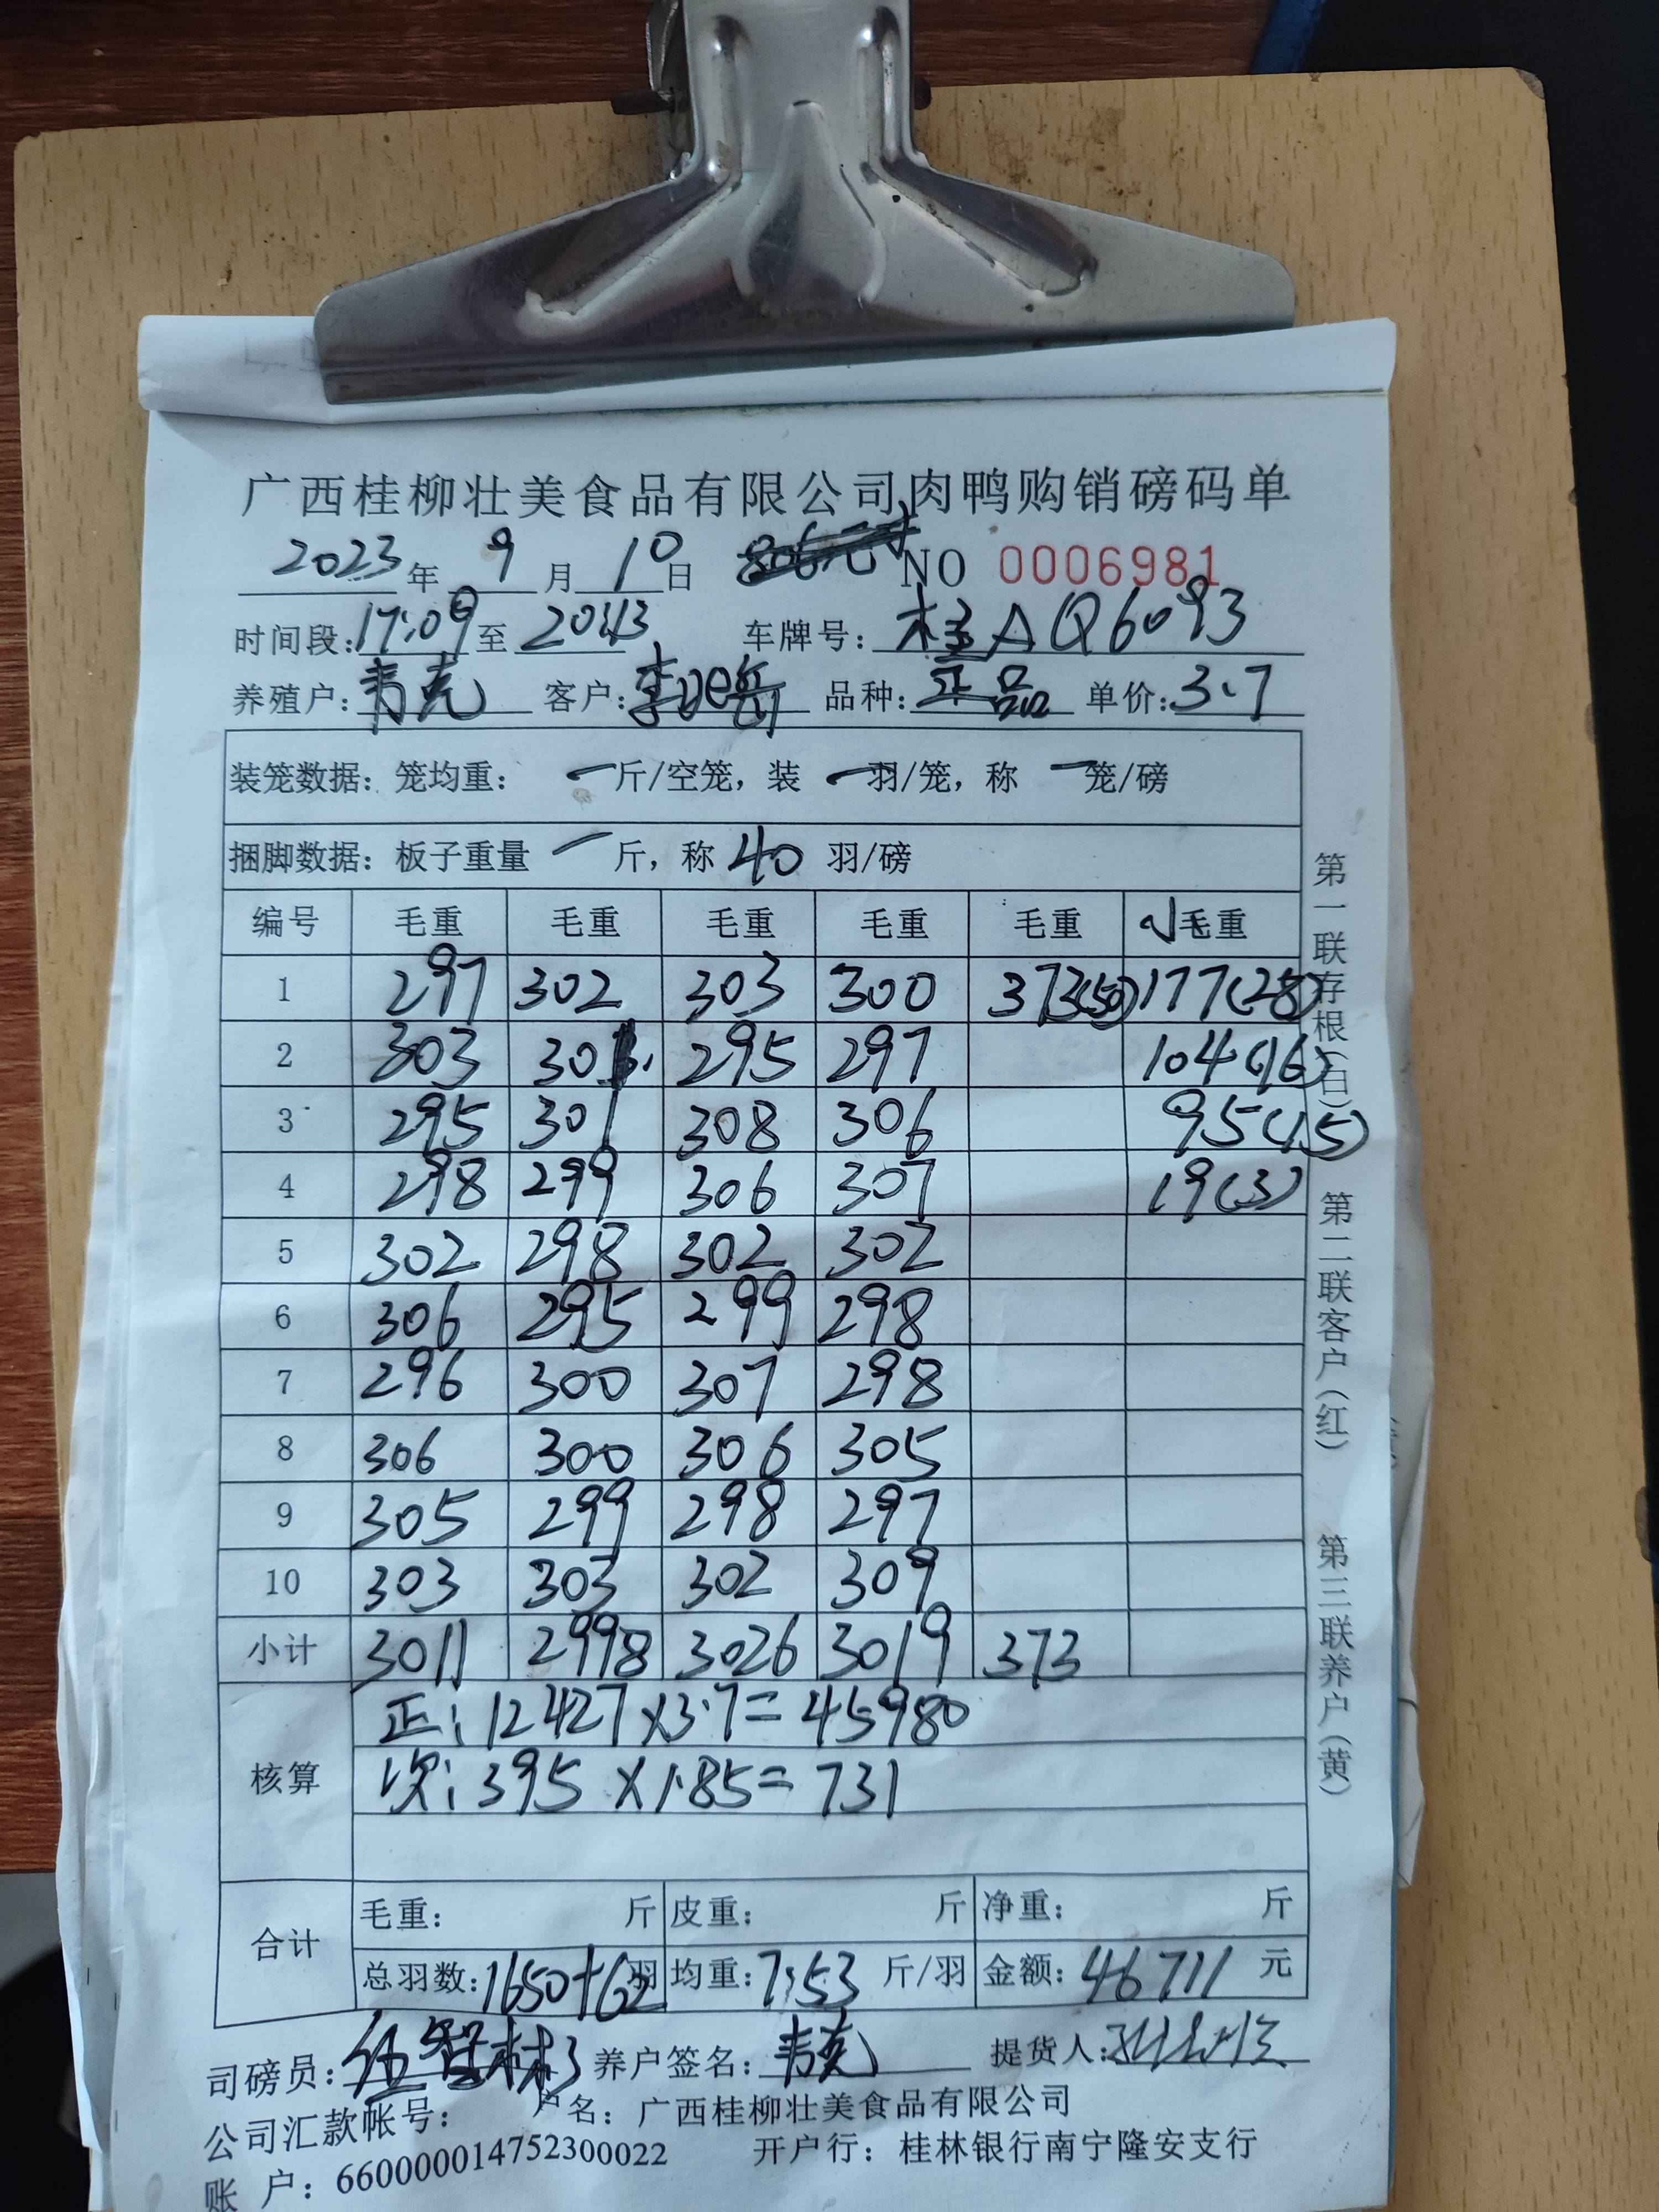 广西桂柳壮美食品有限公司肉鸭购销磅码单
2023年 9月10日 NO 0006981
时间段:17:09至20:43 车牌号:桂AQ6093
养殖户:韦克 客户: 品种:正品 单价:3.7
装笼数据: 笼均重: 一斤/空笼, 装 一羽/笼, 称 一笼/磅
捆脚数据: 板子重量 一 斤, 称 40 羽/磅
编号 毛重 毛重 毛重 毛重 毛重 小毛重
1 297 302 303 300 373(50) 177(28)
2 303 301 295 297 104(16)
3 295 301 308 306 95(15)
4 298 299 306 307 19(3)
5 302 298 302 302
6 306 295 299 298
7 296 300 307 298
8 306 300 306 305
9 305 299 298 297
10 303 303 302 309
小计 3011 2998 3026 3019 373
核算
正: 12427×3.7=45980
次: 395×1.85=731
合计
毛重: 斤 皮重: 斤 净重: 斤
总羽数:1650+62羽 均重:7.53 斤/羽 金额:46711 元
司磅员: 养户签名:韦克 提货人:
公司汇款帐号: 户名: 广西桂柳壮美食品有限公司
账 户: 660000014752300022 开户行: 桂林银行南宁隆安支行
第一联存根(白) 第二联客户(红) 第三联养户(黄)